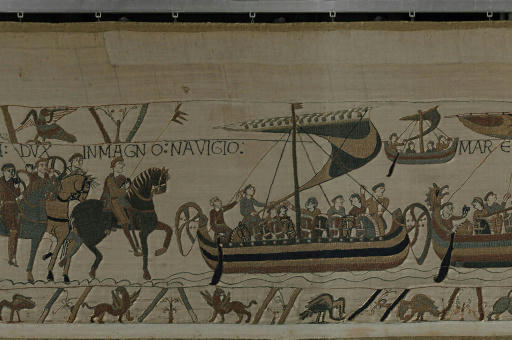 : DVX IN MAGNO : NAVIGIO :
MARE